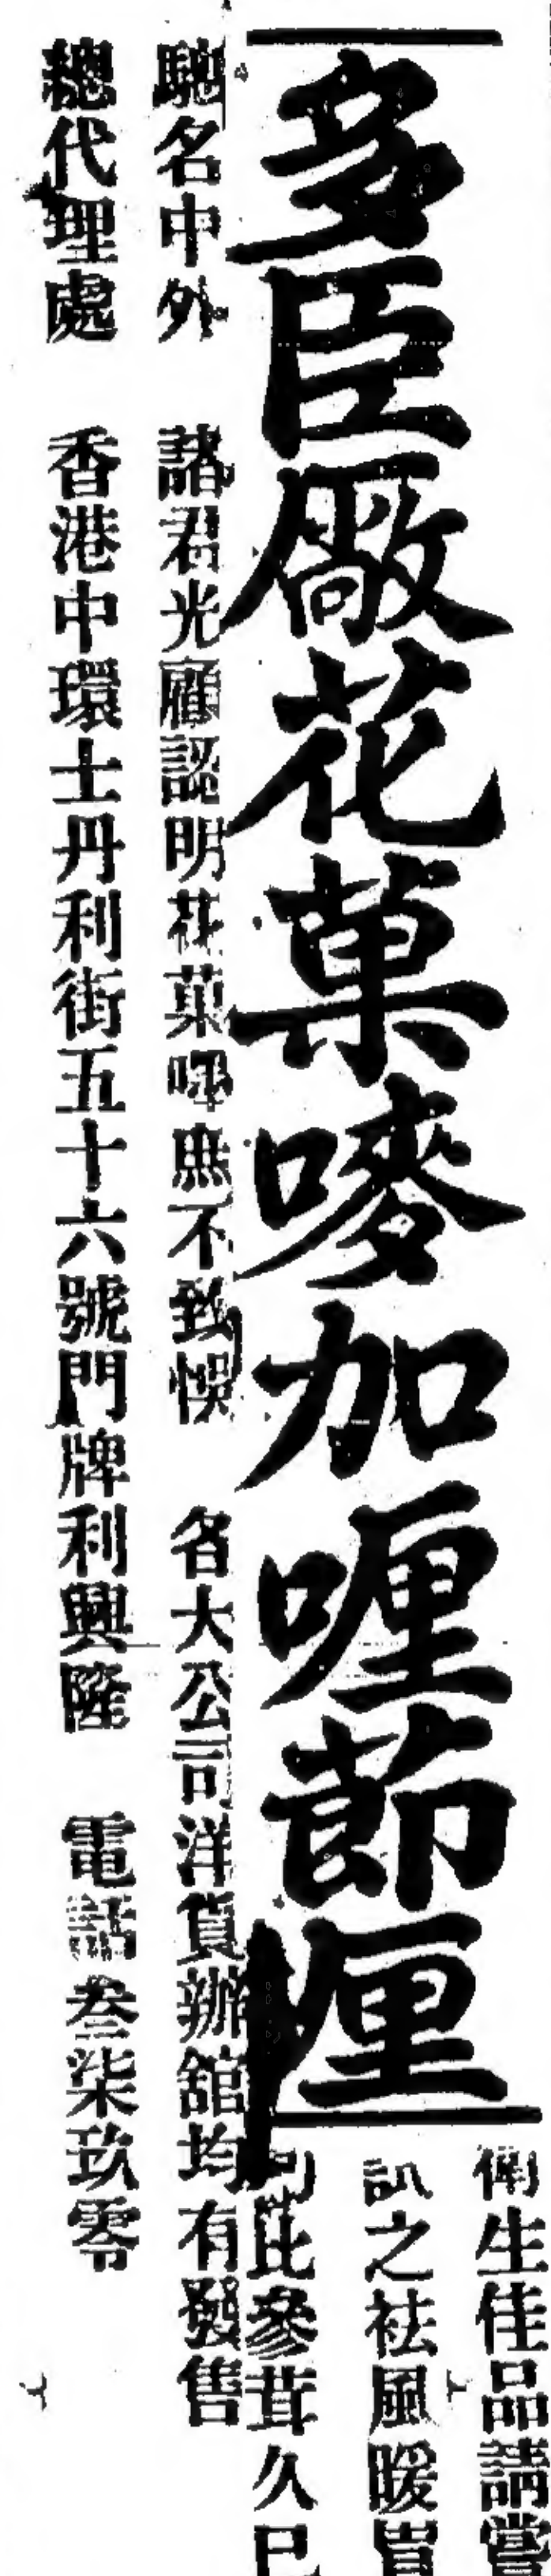 多臣厰花菓嘜加喱節喱
生佳品請嘗
之祛風暖胃
此參茸久已
馳名中外 諸君光顧認明花菓嘜庶不致悞 各大公司洋貨辦舘均有發售
總代理處 香港中環士丹利街五十六號門牌利興隆 電話叁柒玖零